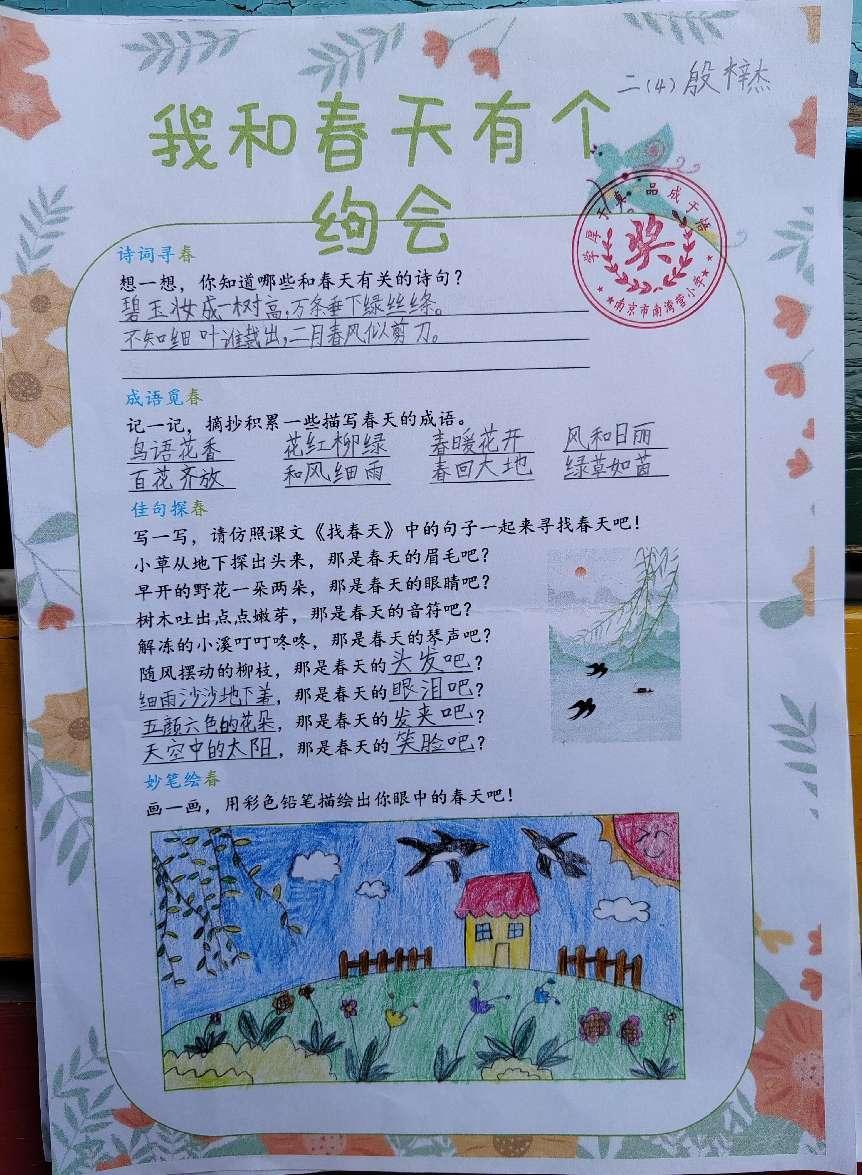 二(4) 殷梓杰
我和春天有个
约会
学厚于真 品成于悟
奖
★★南京市南湾营小学★★
诗词寻春
想一想，你知道哪些和春天有关的诗句？
碧玉妆成一树高,万条垂下绿丝绦。
不知细叶谁裁出,二月春风似剪刀。
成语觅春
记一记，摘抄积累一些描写春天的成语。
鸟语花香 花红柳绿 春暖花开 风和日丽
百花齐放 和风细雨 春回大地 绿草如茵
佳句探春
写一写，请仿照课文《找春天》中的句子一起来寻找春天吧！
小草从地下探出头来，那是春天的眉毛吧？
早开的野花一朵两朵，那是春天的眼睛吧？
树木吐出点点嫩芽，那是春天的音符吧？
解冻的小溪叮叮咚咚，那是春天的琴声吧？
随风摆动的柳枝，那是春天的头发吧？
细雨沙沙地下着，那是春天的眼泪吧？
五颜六色的花朵，那是春天的发夹吧？
天空中的太阳，那是春天的笑脸吧？
妙笔绘春
画一画，用彩色铅笔描绘出你眼中的春天吧！